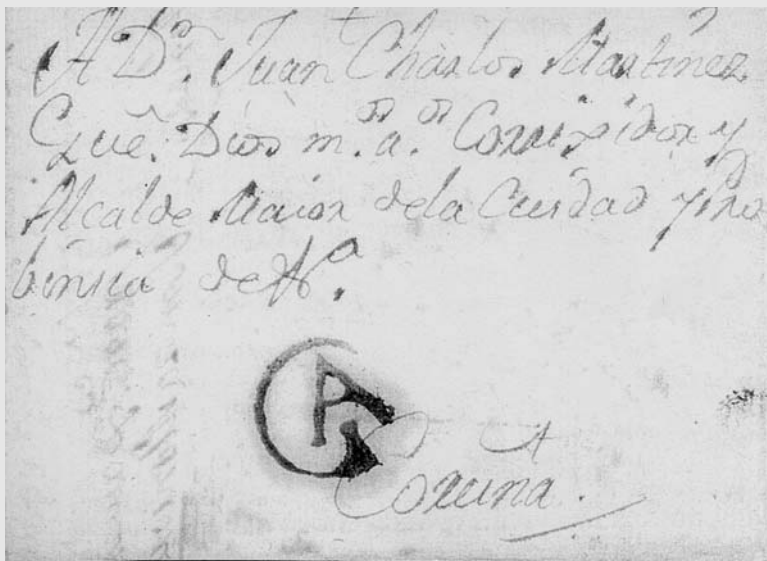 A Dn. Juan Charlos Martinez
Que. Dios m.s a.s Correxidor y
Alcalde Maior dela Ciudad y Pro
binsia de
GA
Coruña.